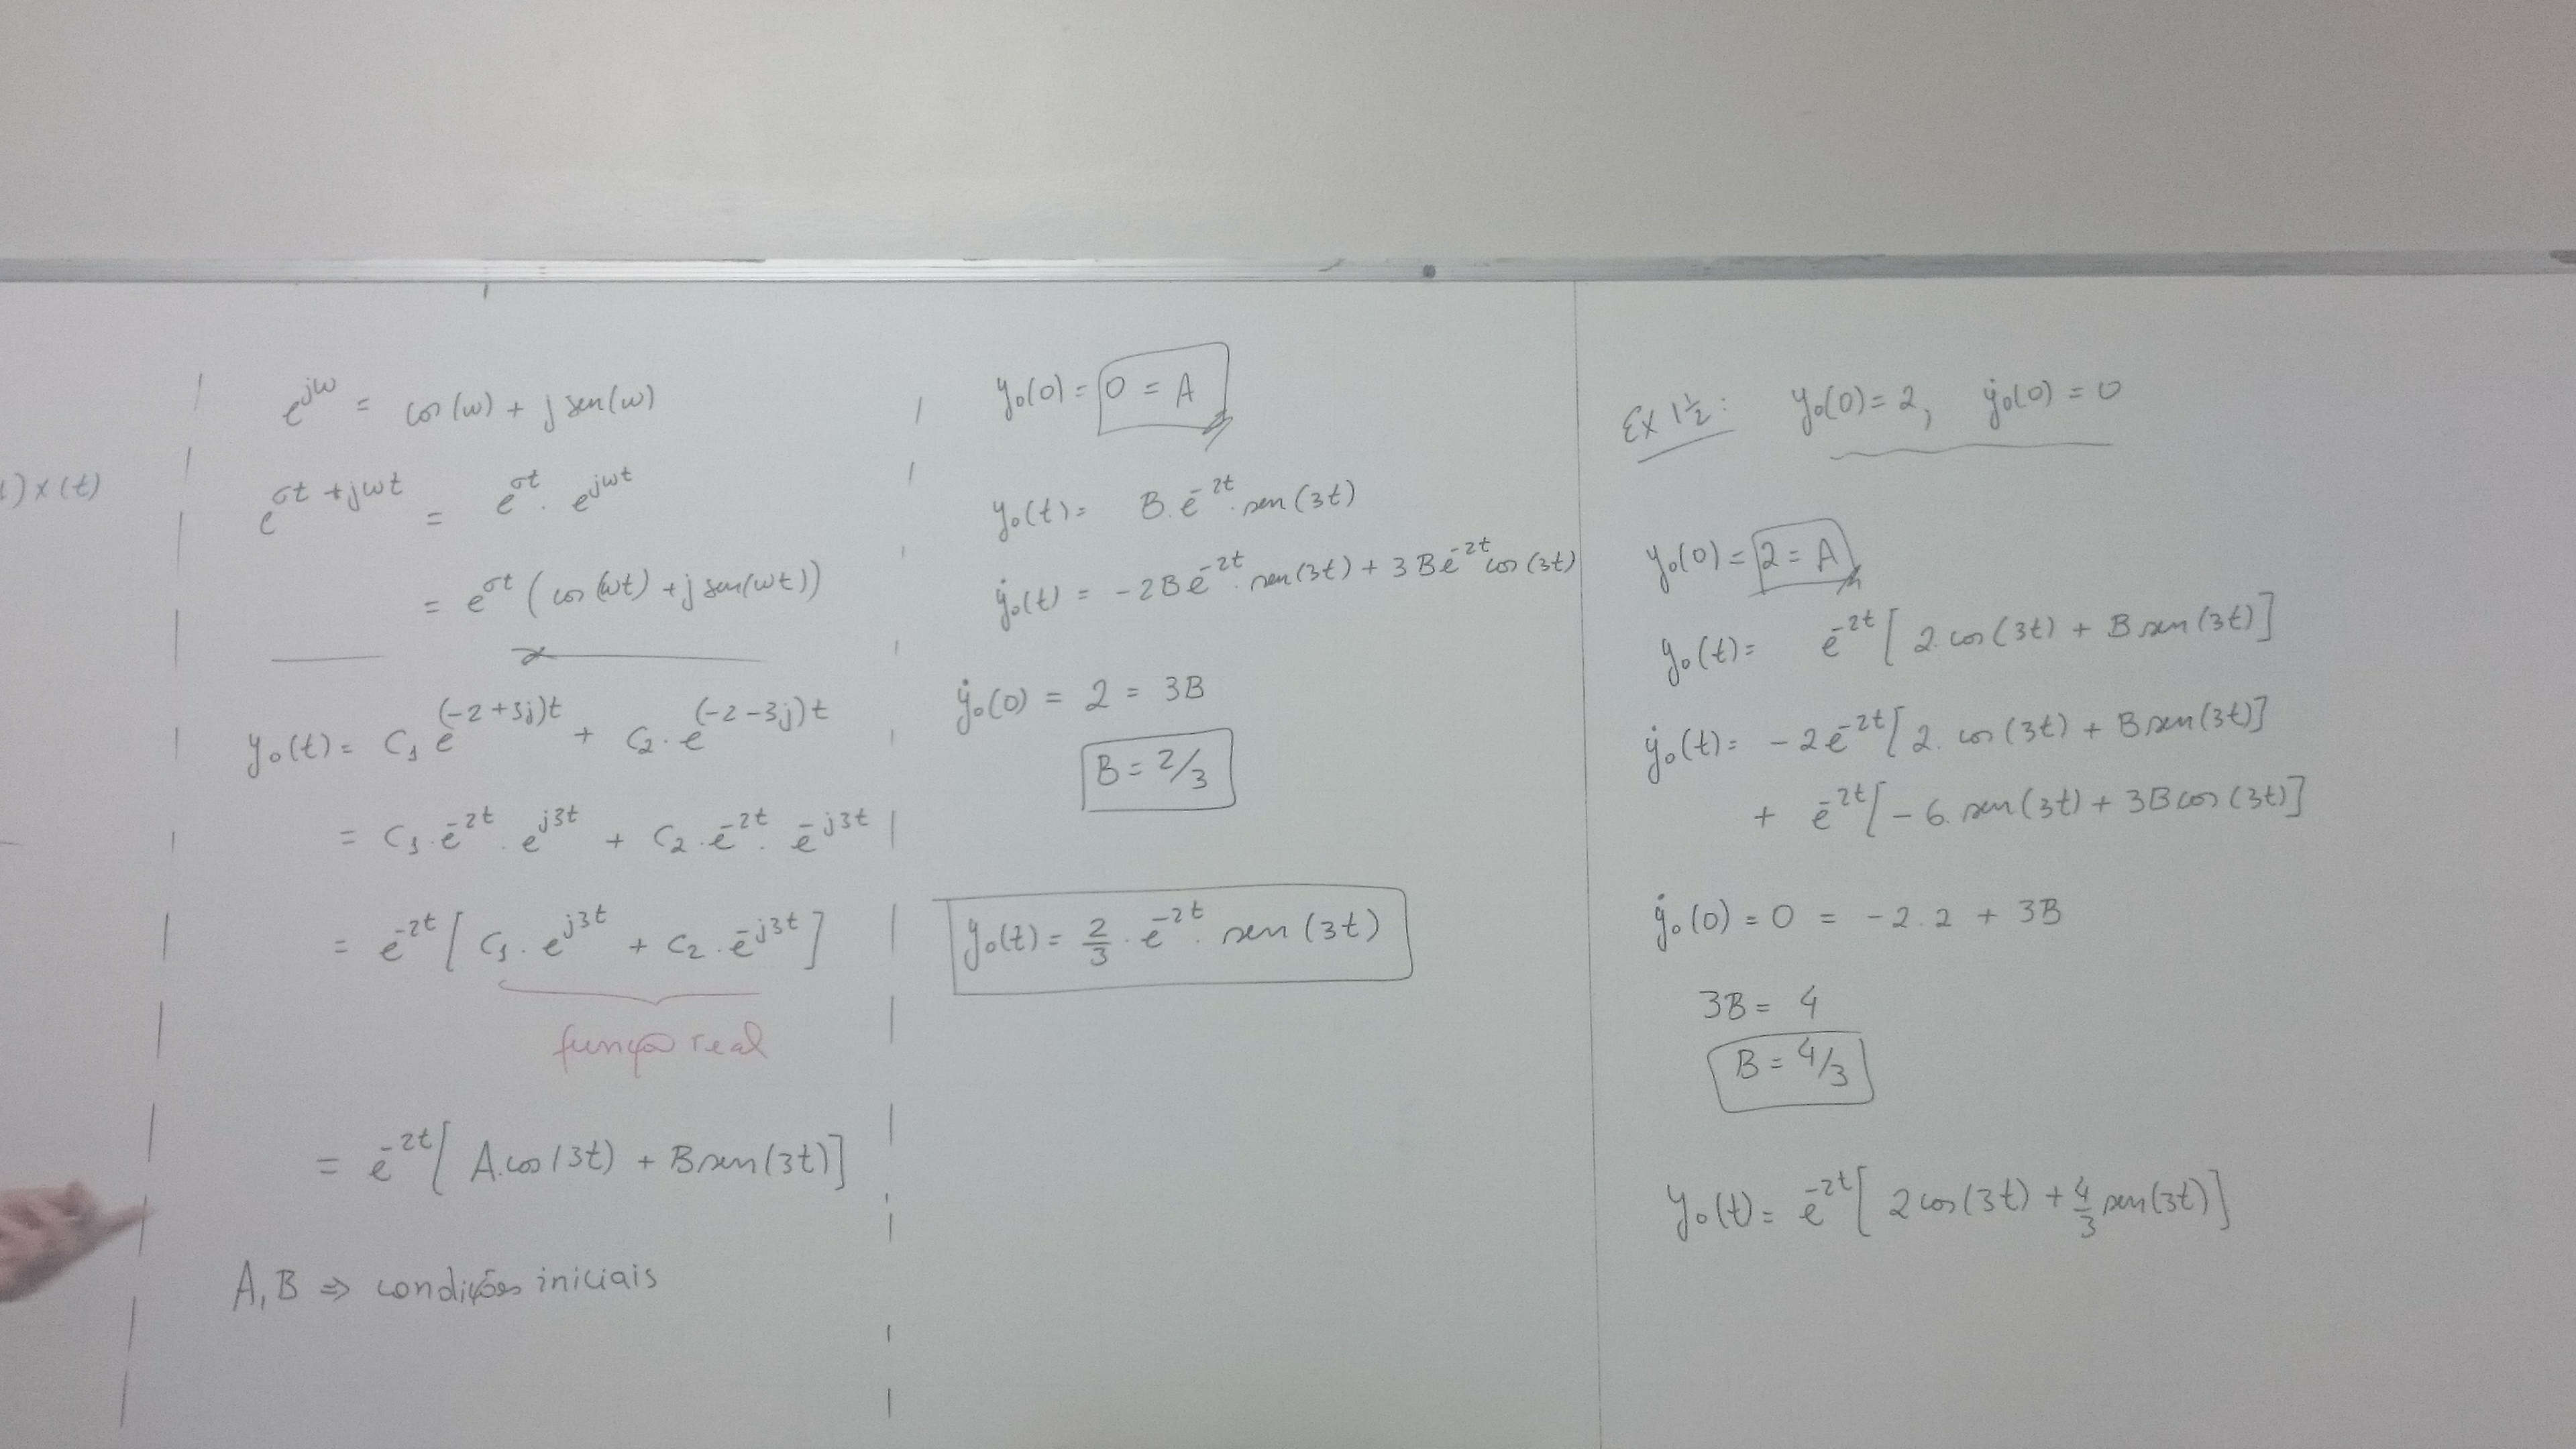 ) x(t)
e^{jω} = cos(ω) + j sen(ω)
e^{σt + jωt} = e^{σt} · e^{jωt}
= e^{σt} (cos(ωt) + j sen(ωt))
y₀(t) = C₁ e^{(-2+3j)t} + C₂ · e^{(-2-3j)t}
= C₁ · e^{-2t} · e^{j3t} + C₂ · e^{-2t} · e^{-j3t}
= e^{-2t} [ C₁ · e^{j3t} + C₂ · e^{-j3t} ]
função real
= e^{-2t} [ A.cos(3t) + B sen(3t) ]
A, B ⇒ condições iniciais
y₀(0) = 0 = A
y₀(t) = B · e^{-2t} · sen(3t)
ẏ₀(t) = -2B e^{-2t} · sen(3t) + 3B e^{-2t} cos(3t)
ẏ₀(0) = 2 = 3B
B = 2/3
y₀(t) = 2/3 · e^{-2t} · sen(3t)
Ex 1½: y₀(0) = 2, ẏ₀(0) = 0
y₀(0) = 2 = A
y₀(t) = e^{-2t} [ 2.cos(3t) + B sen(3t) ]
ẏ₀(t) = -2 e^{-2t} [ 2. cos(3t) + B sen(3t) ]
+ e^{-2t} [ -6. sen(3t) + 3B cos(3t) ]
ẏ₀(0) = 0 = -2.2 + 3B
3B = 4
B = 4/3
y₀(t) = e^{-2t} [ 2 cos(3t) + 4/3 sen(3t) ]